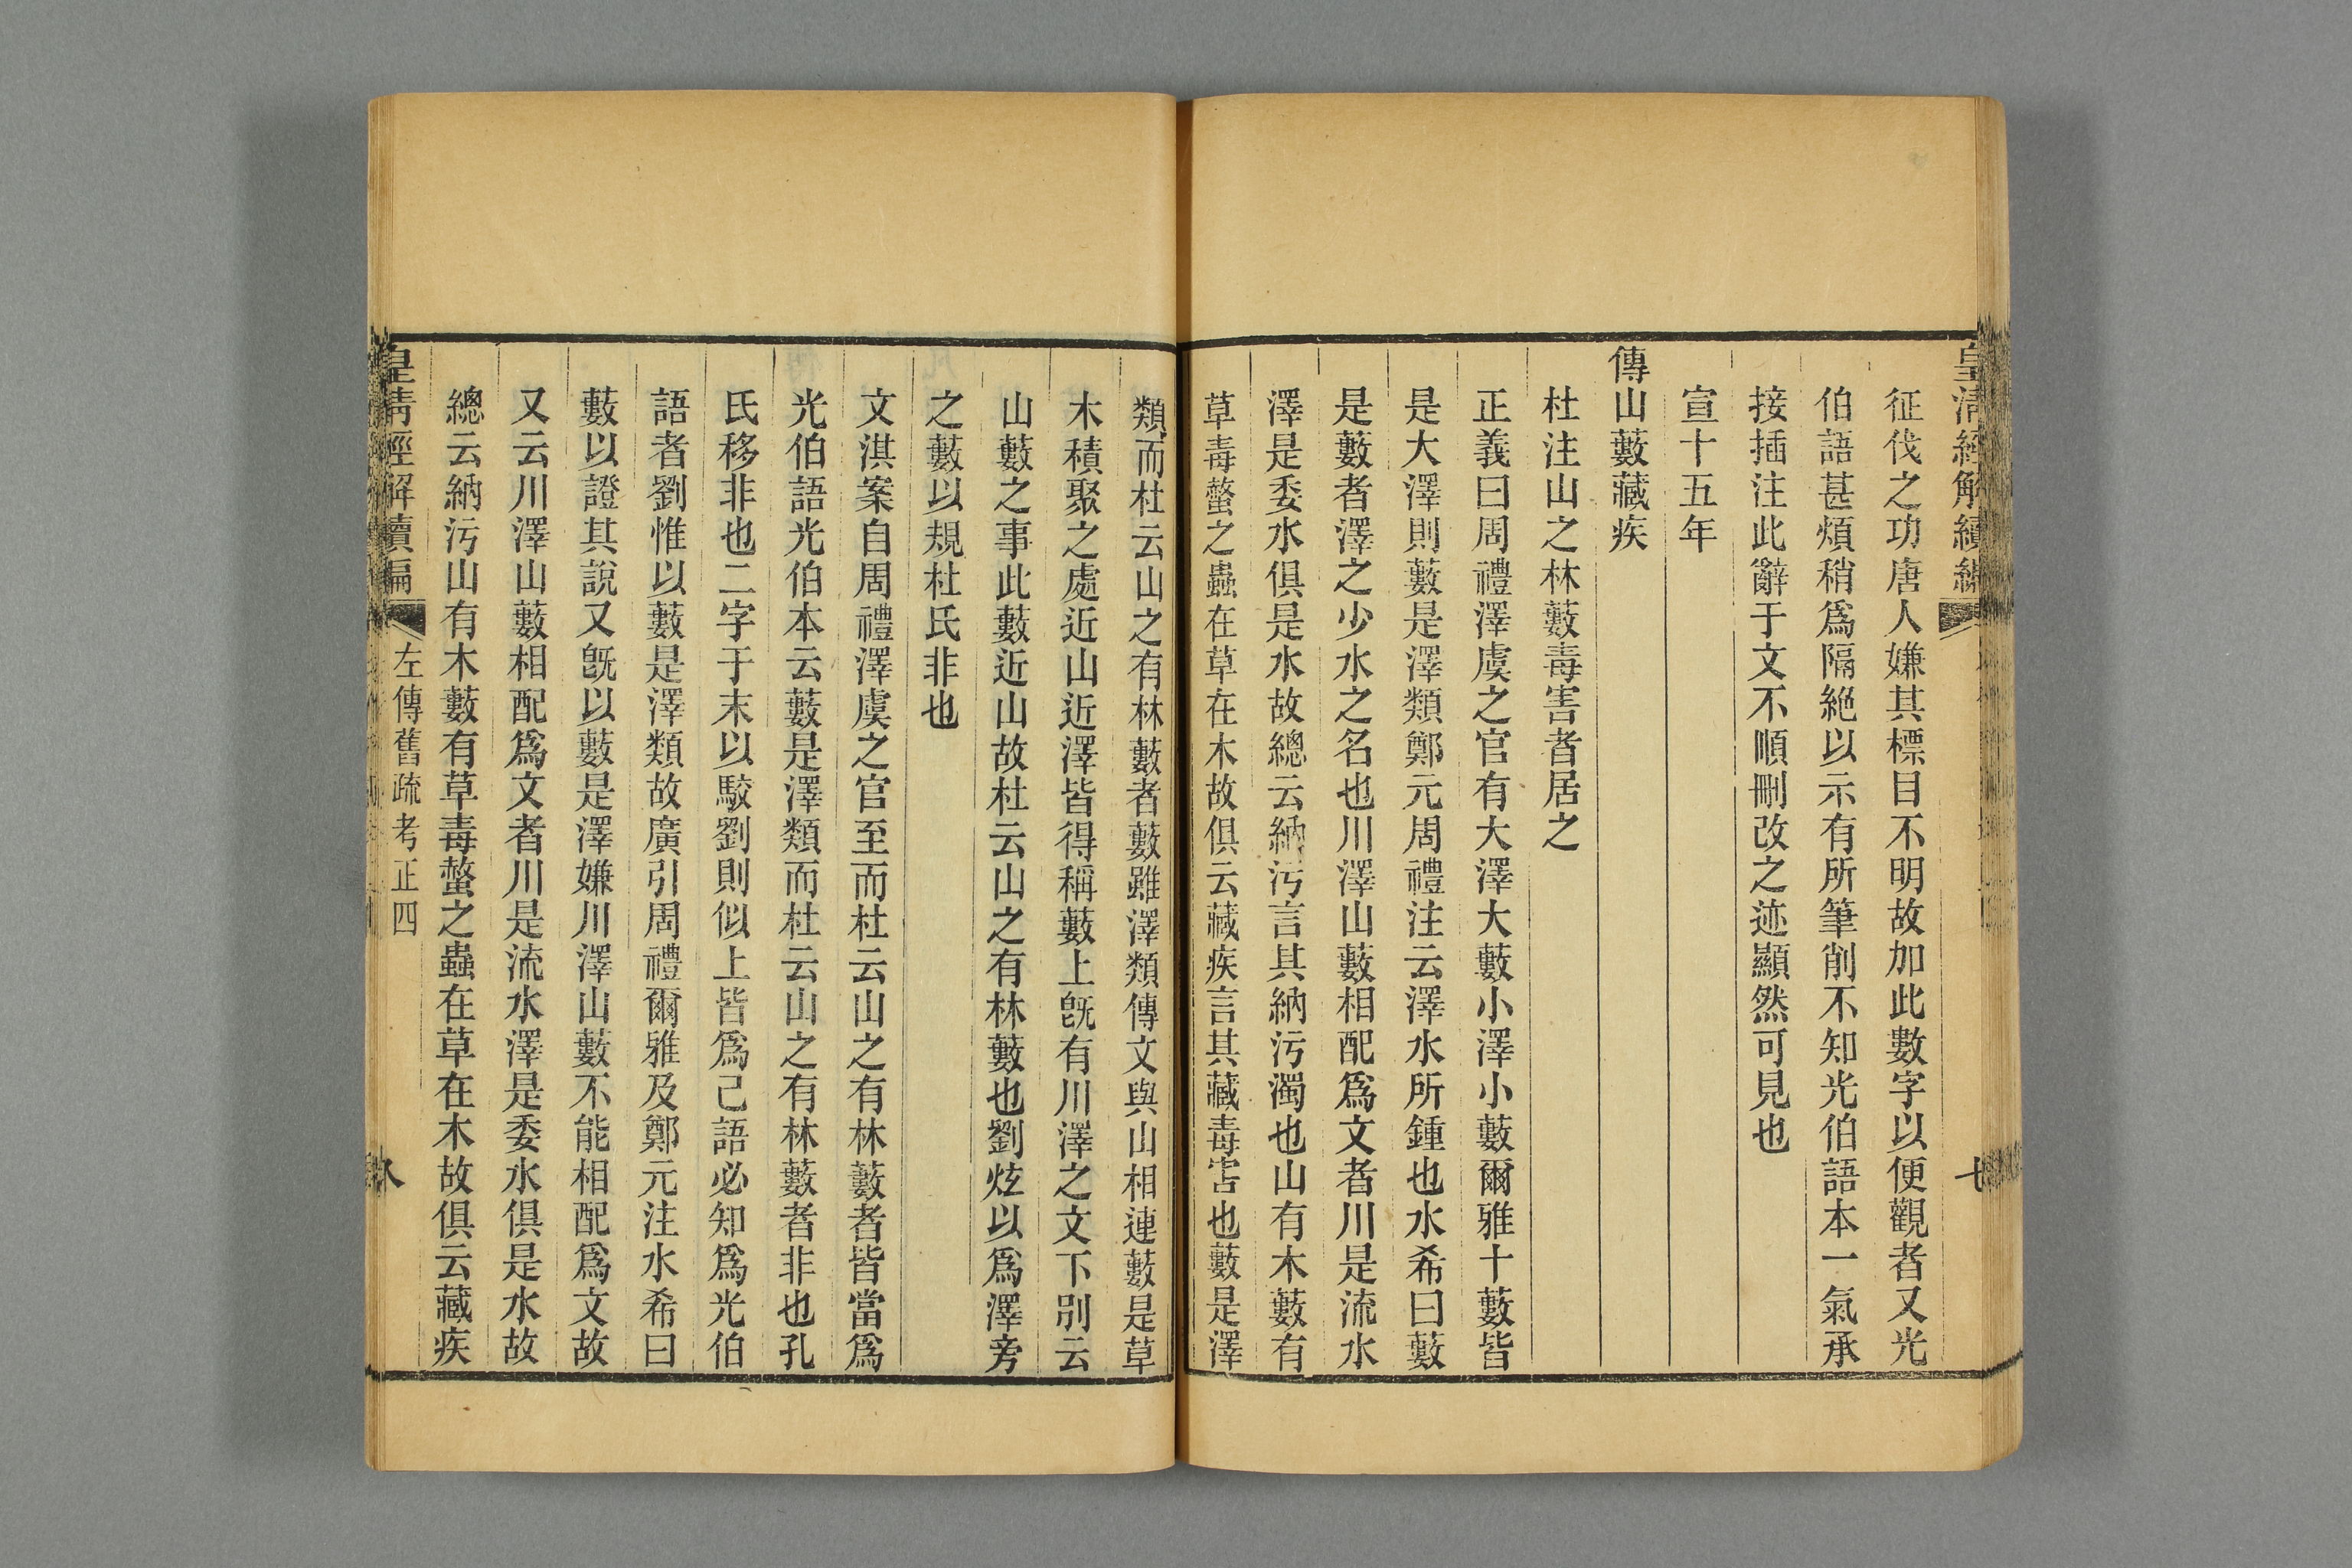 皇清經解續編
七
征伐之功唐人嫌其標目不明故加此數字以便觀者又光
伯語甚煩稍爲隔絶以示有所筆削不知光伯語本一氣承
接插注此辭于文不順刪改之迹顯然可見也
宣十五年
傳山藪藏疾
杜注山之林藪毒害者居之
正義曰周禮澤虞之官有大澤大藪小澤小藪爾雅十藪皆
是大澤則藪是澤類鄭元周禮注云澤水所鍾也水希曰藪
是藪者澤之少水之名也川澤山藪相配爲文者川是流水
澤是委水俱是水故總云納污言其納污濁也山有木藪有
草毒螫之蟲在草在木故俱云藏疾言其藏毒害也藪是澤
類而杜云山之有林藪者藪雖澤類傳文與山相連藪是草
木積聚之處近山近澤皆得稱藪上旣有川澤之文下別云
山藪之事此藪近山故杜云山之有林藪也劉炫以爲澤旁
之藪以規杜氏非也
文淇案自周禮澤虞之官至而杜云山之有林藪者皆當爲
光伯語光伯本云藪是澤類而杜云山之有林藪者非也孔
氏移非也二字于末以駮劉則似上皆爲己語必知爲光伯
語者劉惟以藪是澤類故廣引周禮爾雅及鄭元注水希曰
藪以證其說又旣以藪是澤嫌川澤山藪不能相配爲文故
又云川澤山藪相配爲文者川是流水澤是委水俱是水故
總云納污山有木藪有草毒螫之蟲在草在木故俱云藏疾
皇清經解續編
左傳舊疏考正四
八